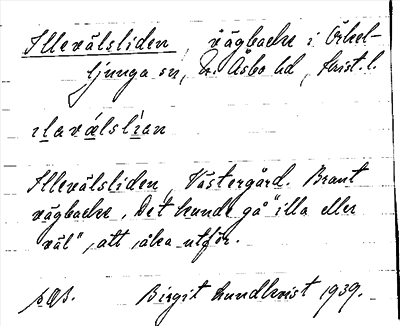 Illevälsliden, vägbacke i Örkel-
ljunga sn, N. Åsbo hd, Krist. l.
ılavǽlslı̄an
Illevälsliden, Västergård. Brant
vägbacke. Det kunde gå "illa eller
väl", att åka utför.
Birgit Lundkvist 1939.